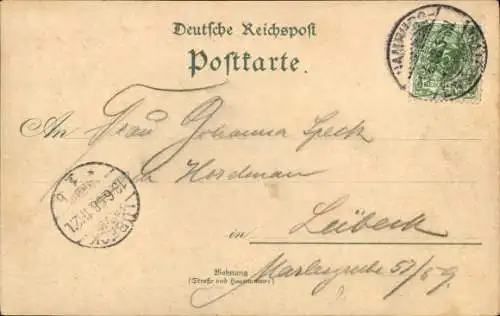 Deutsche Reichspost
Postkarte.
HAMBURG
An Frau Johanna Speck
Hordman
LÜBECK
in Lübeck
Wohnung
(Straße und Hausnummer)
Marlesgrube 57/59